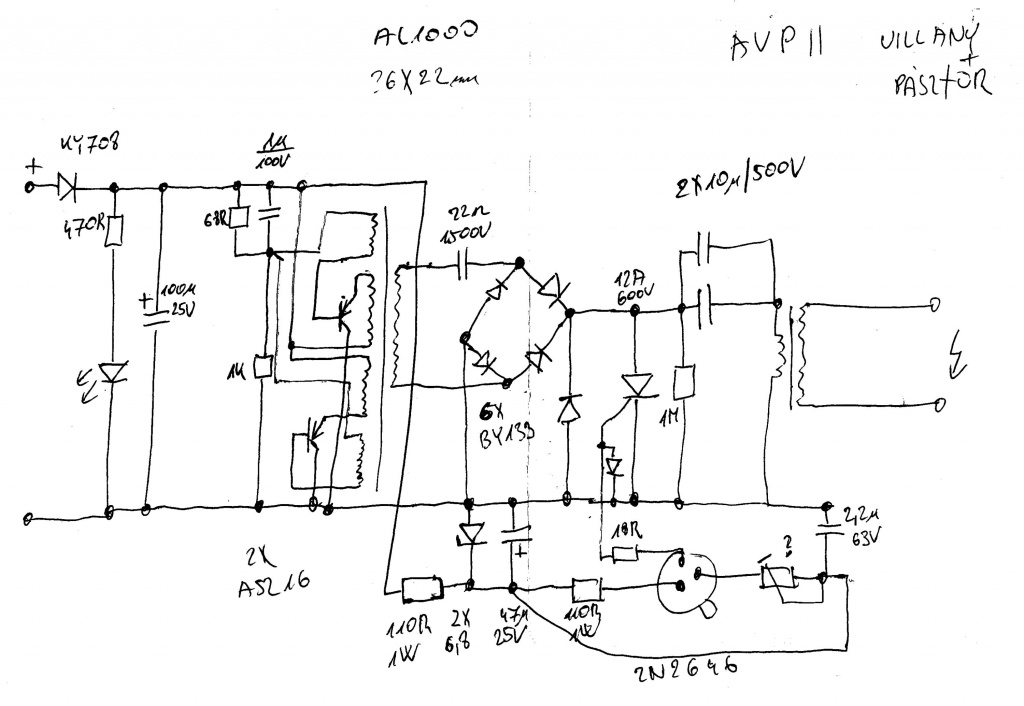 AL1000
AVP II
VILLANY
+
PÁSZTOR
KY708
+
1µ
100V
470R
68R
22n
1500V
2X10µ/500V
+
100µ
25V
12A
600V
1K
6X
BY133
1M
2X
ASZ16
18R
2,2µ
63V
?
+
110R
1W
2X
6,8
47µ
25V
110R
1W
2N2646